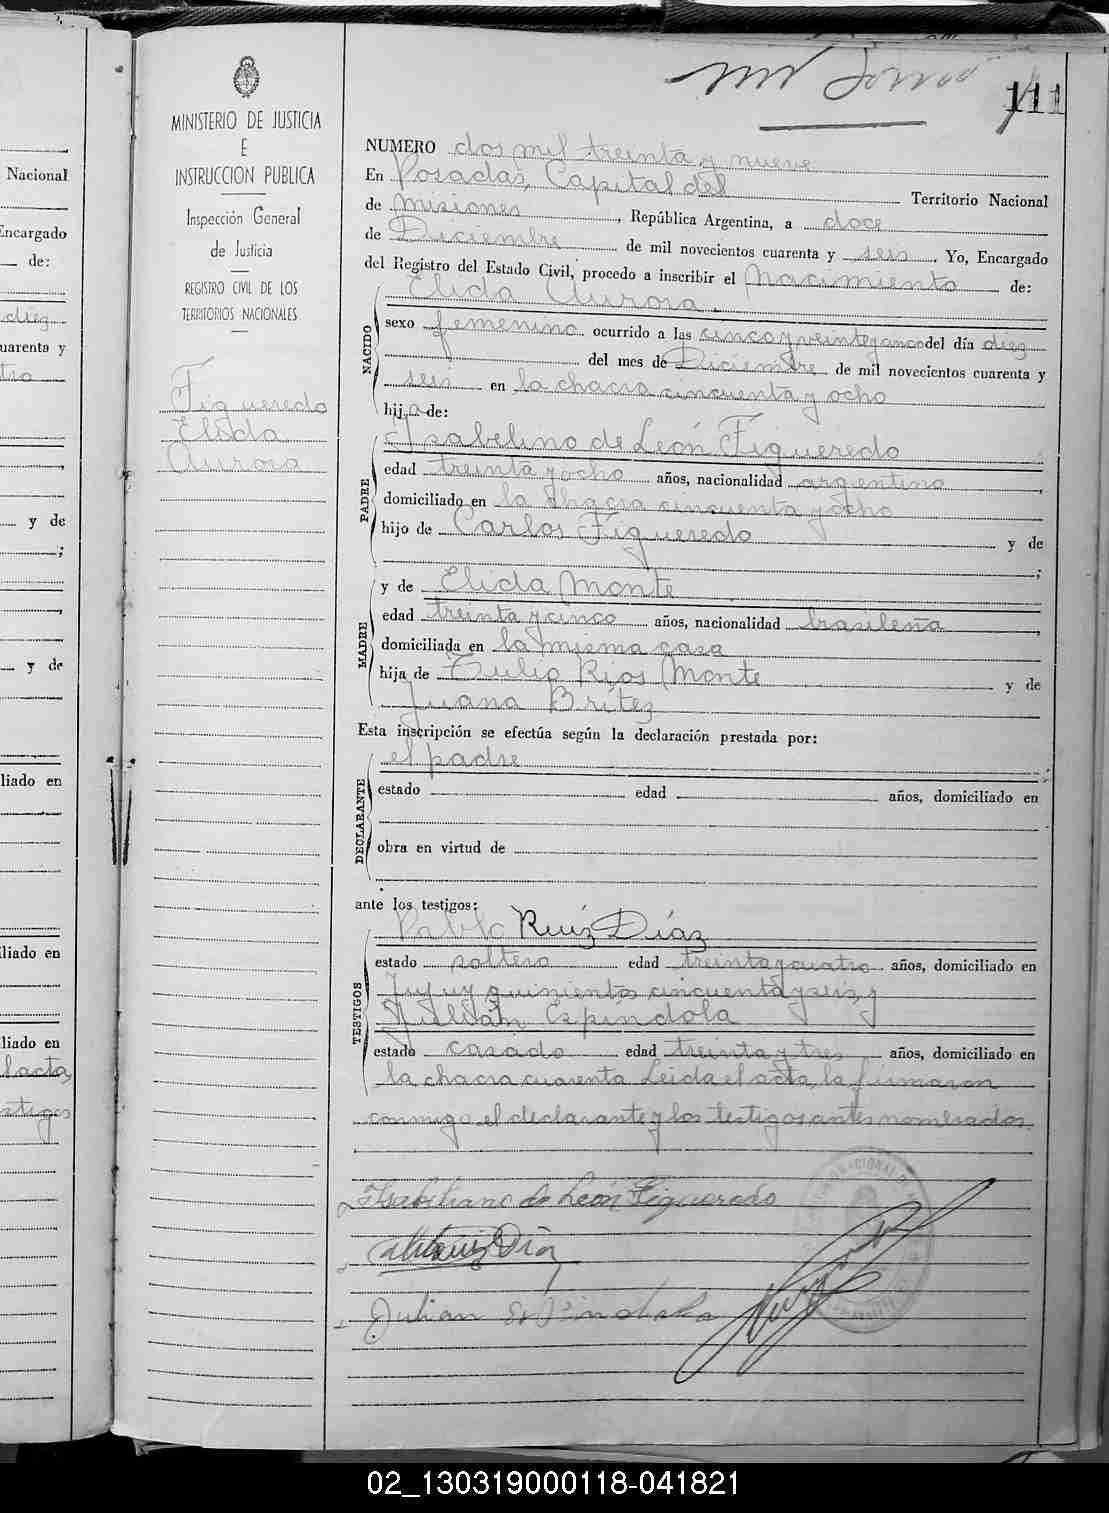 111
MINISTERIO DE JUSTICIA
E
INSTRUCCION PUBLICA
Inspección General
de Justicia
REGISTRO CIVIL DE LOS
TERRITORIOS NACIONALES
Figueredo
Elida
Aurora
NUMERO dos mil treinta y nueve
En Posadas, Capital del Territorio Nacional
de misiones, República Argentina, a doce
de Diciembre de mil novecientos cuarenta y seis. Yo, Encargado
del Registro del Estado Civil, procedo a inscribir el Nacimiento de:
Elida Aurora.
NACIDO
sexo femenino ocurrido a las cinco y veinte y cinco del día diez
del mes de Diciembre de mil novecientos cuarenta y
seis en la chacra cincuenta y ocho
hija de:
Isabelino de León Figueredo
PADRE
edad treinta y ocho años, nacionalidad argentino,
domiciliado en la chacra cincuenta y ocho
hijo de Carlos Figueredo y de
;
y de Elida Monte
MADRE
edad treinta y cinco años, nacionalidad brasileña,
domiciliada en la misma casa
hija de Tulio Rios Monte y de
Juana Brítez
Esta inscripción se efectúa según la declaración prestada por:
el padre
DECLARANTE
estado edad años, domiciliado en
obra en virtud de
ante los testigos:
Pablo Ruiz Díaz
TESTIGOS
estado soltero edad treinta y cuatro años, domiciliado en
Jujuy quinientos cincuenta y seis, y
Julián Espíndola
estado casado edad treinta y tres años, domiciliado en
la chacra cuarenta Leida el acta, la firmaron
conmigo el declarante y los testigos antes nombrados.
de León Figueredo
Julian
Nacional
Encargado
de:
diez
uarenta y
y de
;
y de
liado en
liado en
liado en
lacta,
stigos
02_130319000118-041821